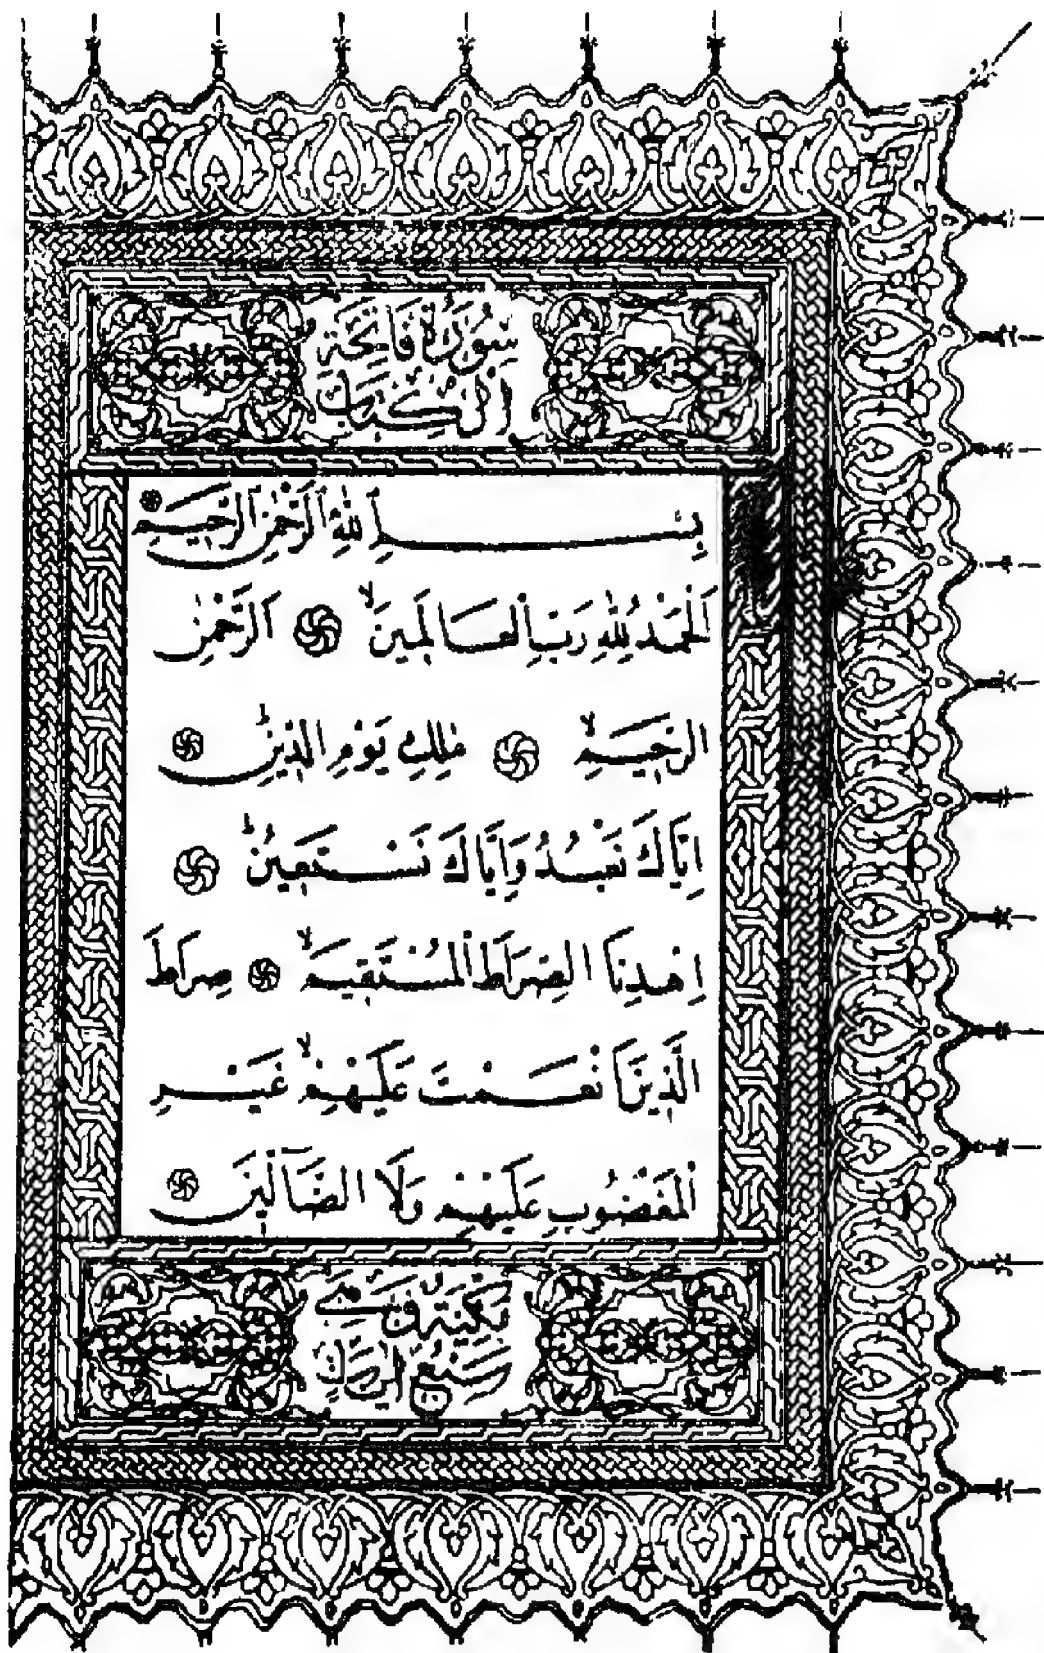 سُورَةُ فَاتِحَةِ
الْكِتَابِ
بِسْــــــمِ اللهِ الرَّحْمٰنِ الرَّحِيمِ
اَلْحَمْدُ لِلّٰهِ رَبِّ الْعَالَمِينَۙ اَلرَّحْمٰنِ
الرَّحِيمِۙ مٰلِكِ يَوْمِ الدِّينِۜ
اِيَّاكَ نَعْبُدُ وَاِيَّاكَ نَسْتَعِينُۜ
اِهْدِنَا الصِّرَاطَ الْمُسْتَقِيمَۙ صِرَاطَ
الَّذِينَ اَنْعَمْتَ عَلَيْهِمْۙ غَيْرِ
الْمَغْضُوبِ عَلَيْهِمْ وَلَا الضَّٓالِّينَ
مَكِّيَّةٌ وَهِيَ
سَبْعُ اٰيَاتٍ